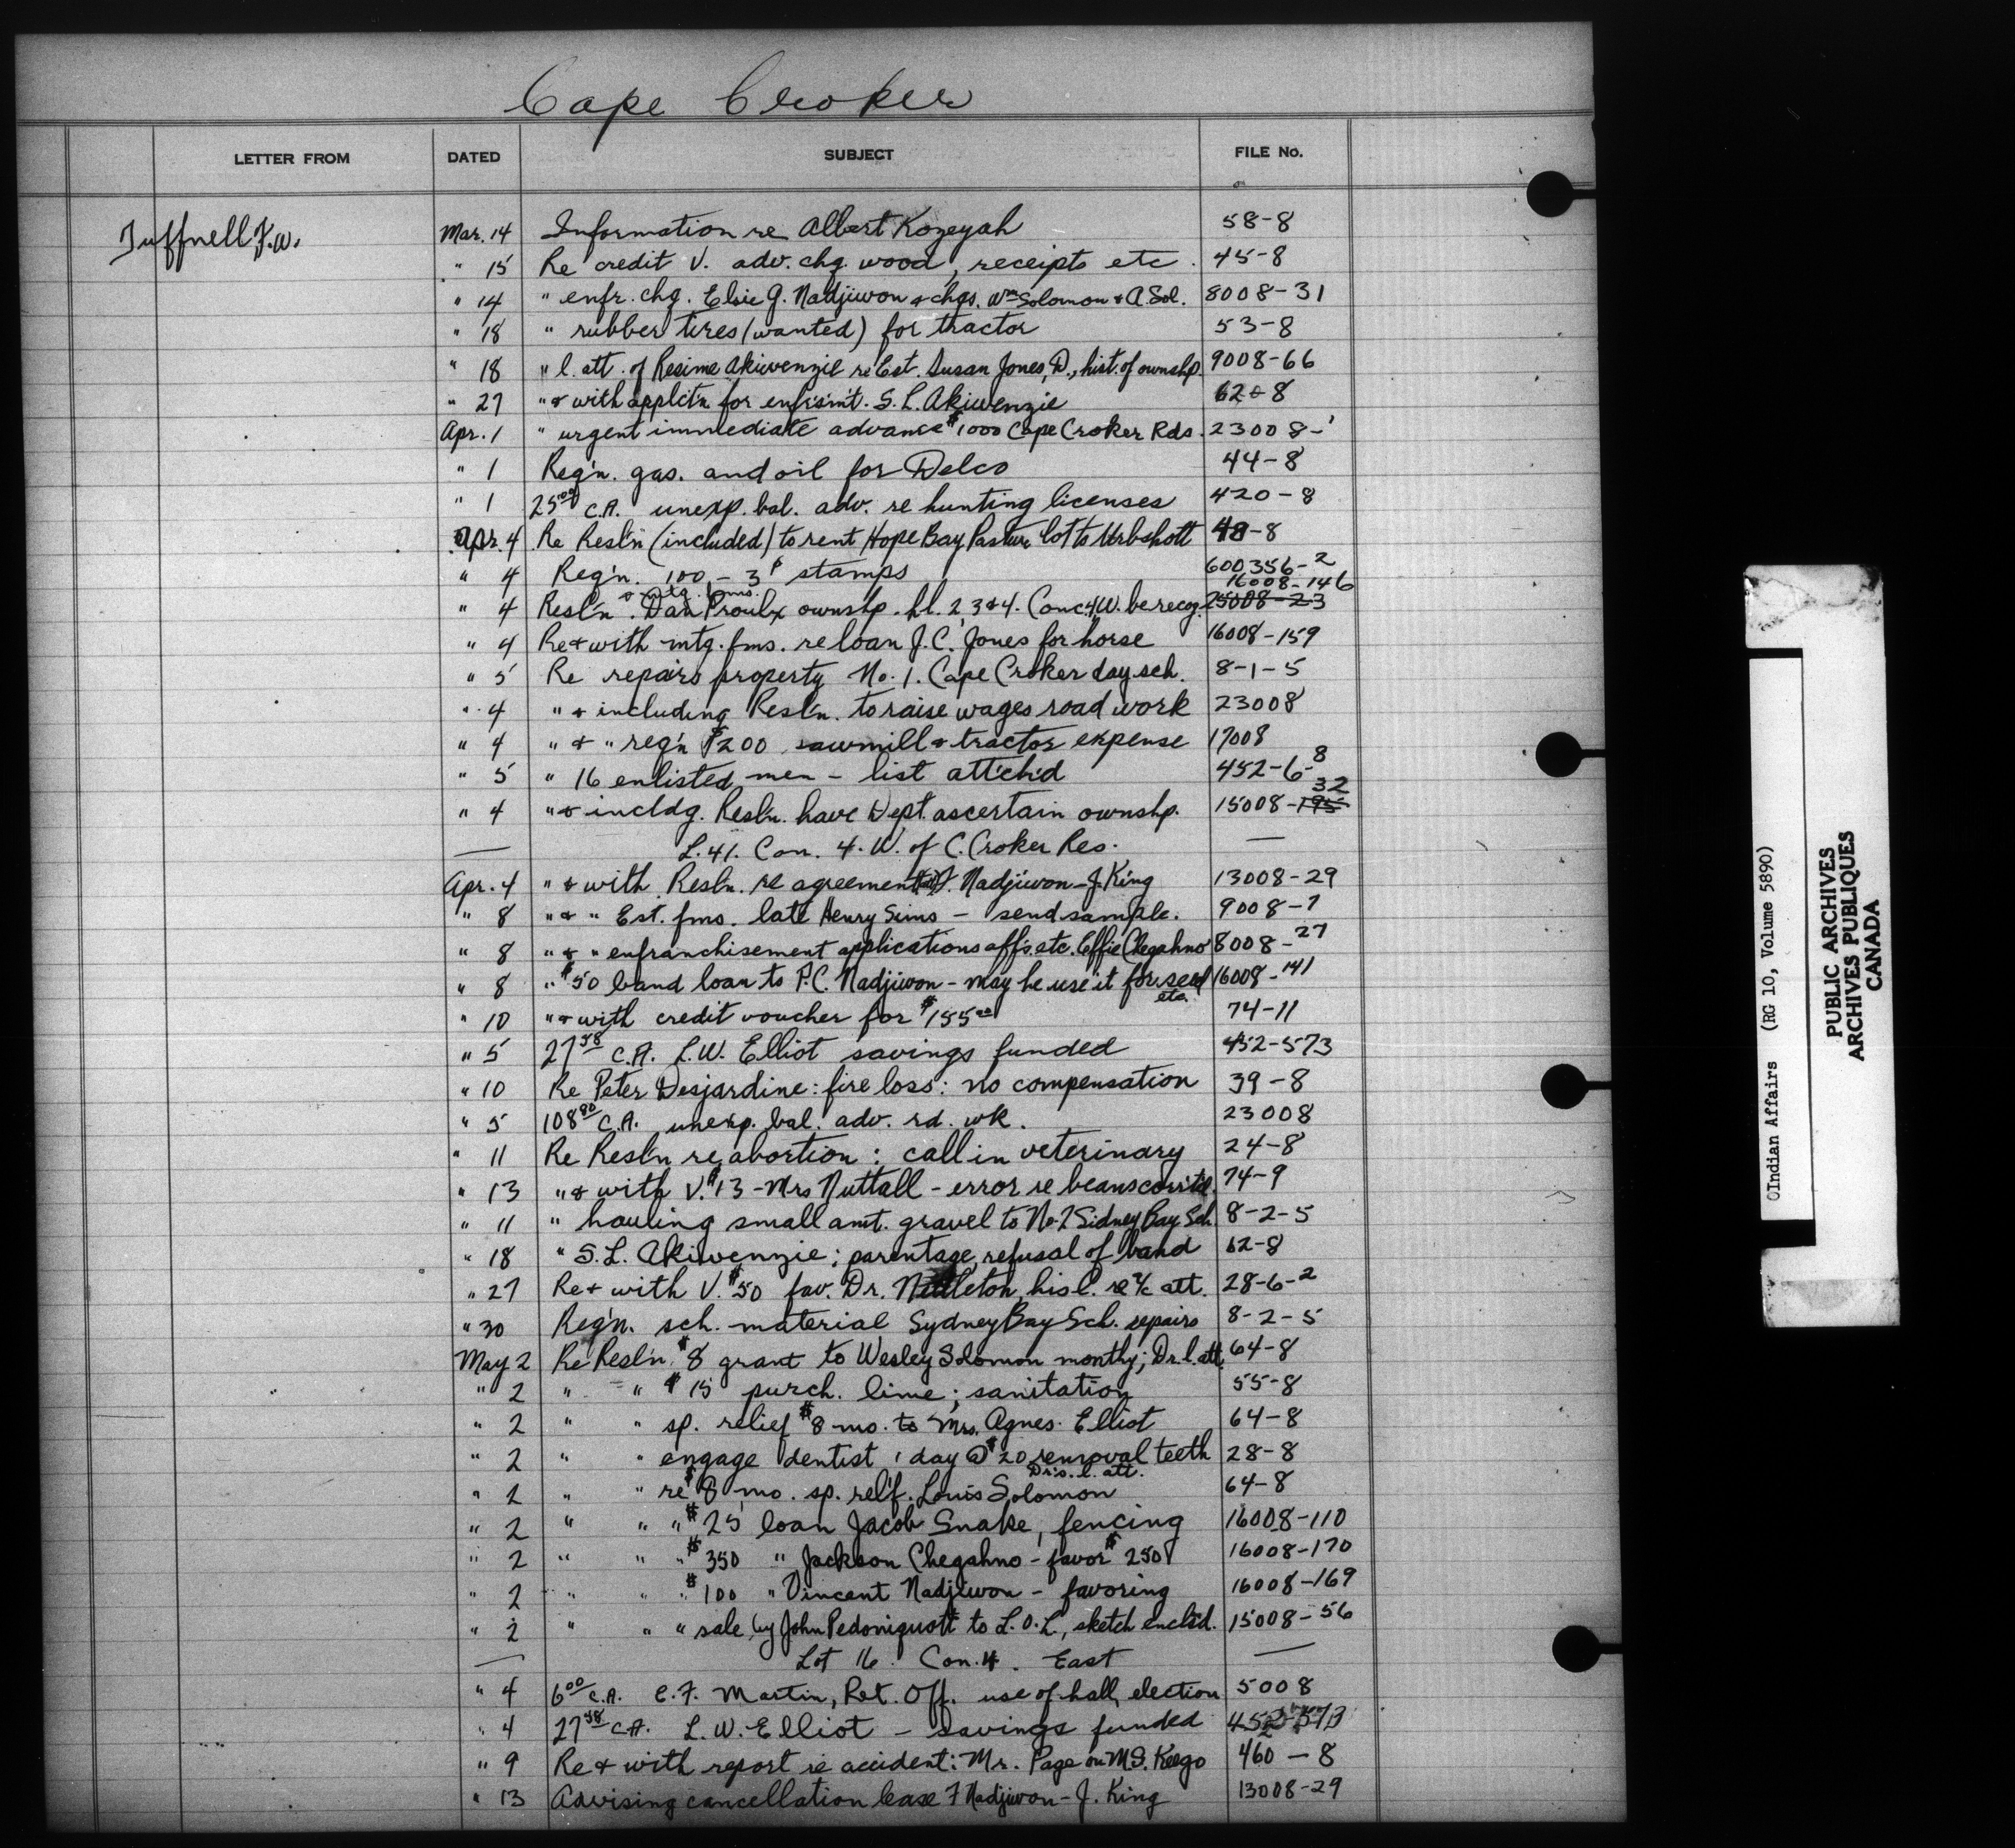 Cape Croker
LETTER FROM DATED SUBJECT FILE No.
Tuffnell F.W. Mar. 14 Information re Albert Kozeyah 58-8
" 15 Re credit V. adv. chg. wood, receipts etc. 45-8
" 14 " enfr. chg. Elsie G. Nadjiwon & chgs. Wm Solomon & A. Sol. 8008-31
" 18 " rubber tires (wanted) for tractor 53-8
" 18 " l. att. of Resime Akiwenzie re Est. Susan Jones, D., hist. of ownshp. 9008-66
" 27 " & with applct'n for enfr'sm't. S. L. Akiwenzie 62-8
Apr. 1 " urgent immediate advance $1000 Cape Croker Rds. 23008-1
" 1 Req'n. gas. and oil for Delco 44-8
" 1 25 00 C.A. unexp. bal. adv. re hunting licenses 420-8
Apr. 4 Re Resl'n (included) to rent Hope Bay Pasture lot to Urbshott 48-8
" 4 Req'n. 100 - 3¢ stamps 600356-2
& mtg. fms. 16008-146
" 4 Resl'n. Dan Proulx ownshp. hl. 2, 3 & 4. Conc 4 W. be recog. 25008-23
" 4 Re & with mtg. fms. re loan J. C. Jones for horse 16008-159
" 5 Re repairs property No. 1. Cape Croker day sch. 8-1-5
" 4 " & including Resl'n. to raise wages road work 23008
" 4 " & " req'n $200 sawmill & tractor expense 17008
" 5 " 16 enlisted men - list att'ch'd 452-6-8
" 4 " & incldg. Resl'n. have Dept. ascertain ownshp. 15008-195 32
— L. 41. Con. 4. W. of C. Croker Res. —
Apr. 4 " & with Resl'n. re agreement F. Nadjiwon - J. King 13008-29
" 8 " & " Est. fms. late Henry Sims - send sample. 9008-7
" 8 " & " enfranchisement applications affs. etc. Effie Chegahno 8008-27
" 8 " $50 band loan to P. C. Nadjiwon - may he use it for seed etc. 16008-141
" 10 " & with credit voucher for $155 00 74-11
" 5 27 58 C.A. L. W. Elliot savings funded 452-573
" 10 Re Peter Desjardine: fire loss: no compensation 39-8
" 5 108 90 C.A. unexp. bal. adv. rd. wk. 23008
" 11 Re Resl'n re abortion: call in veterinary 24-8
" 13 " & with V. $13 - Mrs Nuttall - error re beans corr'td. 74-9
" 11 " hauling small amt. gravel to No. 2 Sidney Bay Sch. 8-2-5
" 18 " S. L. Akiwenzie; parentage, refusal of band 62-8
" 27 Re & with V. $50 fav. Dr. Nettleton, his l. re a/c att. 28-6-2
" 30 Req'n. sch. material Sydney Bay Sch. repairs 8-2-5
May 2 Re Resl'n. $8 grant to Wesley Solomon monthy; Dr. l. att. 64-8
" 2 " " $15 purch. lime; sanitation 55-8
" 2 " " sp. relief $8 mo. to Mrs. Agnes Elliot 64-8
" 2 " " engage dentist 1 day @ $20 removal teeth 28-8
Dr's. l. att.
" 2 " " re $8 mo. sp. relf. Louis Solomon 64-8
" 2 " " " $25 loan Jacob Snake, fencing 16008-110
" 2 " " " $350 " Jackson Chegahno - favor $250 16008-170
" 2 " " " $100 " Vincent Nadjiwon - favoring 16008-169
" 2 " " " sale by John Pedoniquott to L.O.L., sketch encls'd. 15008-56
— Lot 16. Con. 4. East —
" 4 6 00 C.A. E. F. Martin, Ret. Off. use of hall, election 5008
" 4 27 58 C.A. L. W. Elliot - savings funded 452-573
" 9 Re & with report re accident: Mr. Page on M.S. Keego 460-8
" 13 Advising cancellation lease F Nadjiwon - J. King 13008-29
Indian Affairs (RG 10, Volume 5890)
PUBLIC ARCHIVES
ARCHIVES PUBLIQUES
CANADA